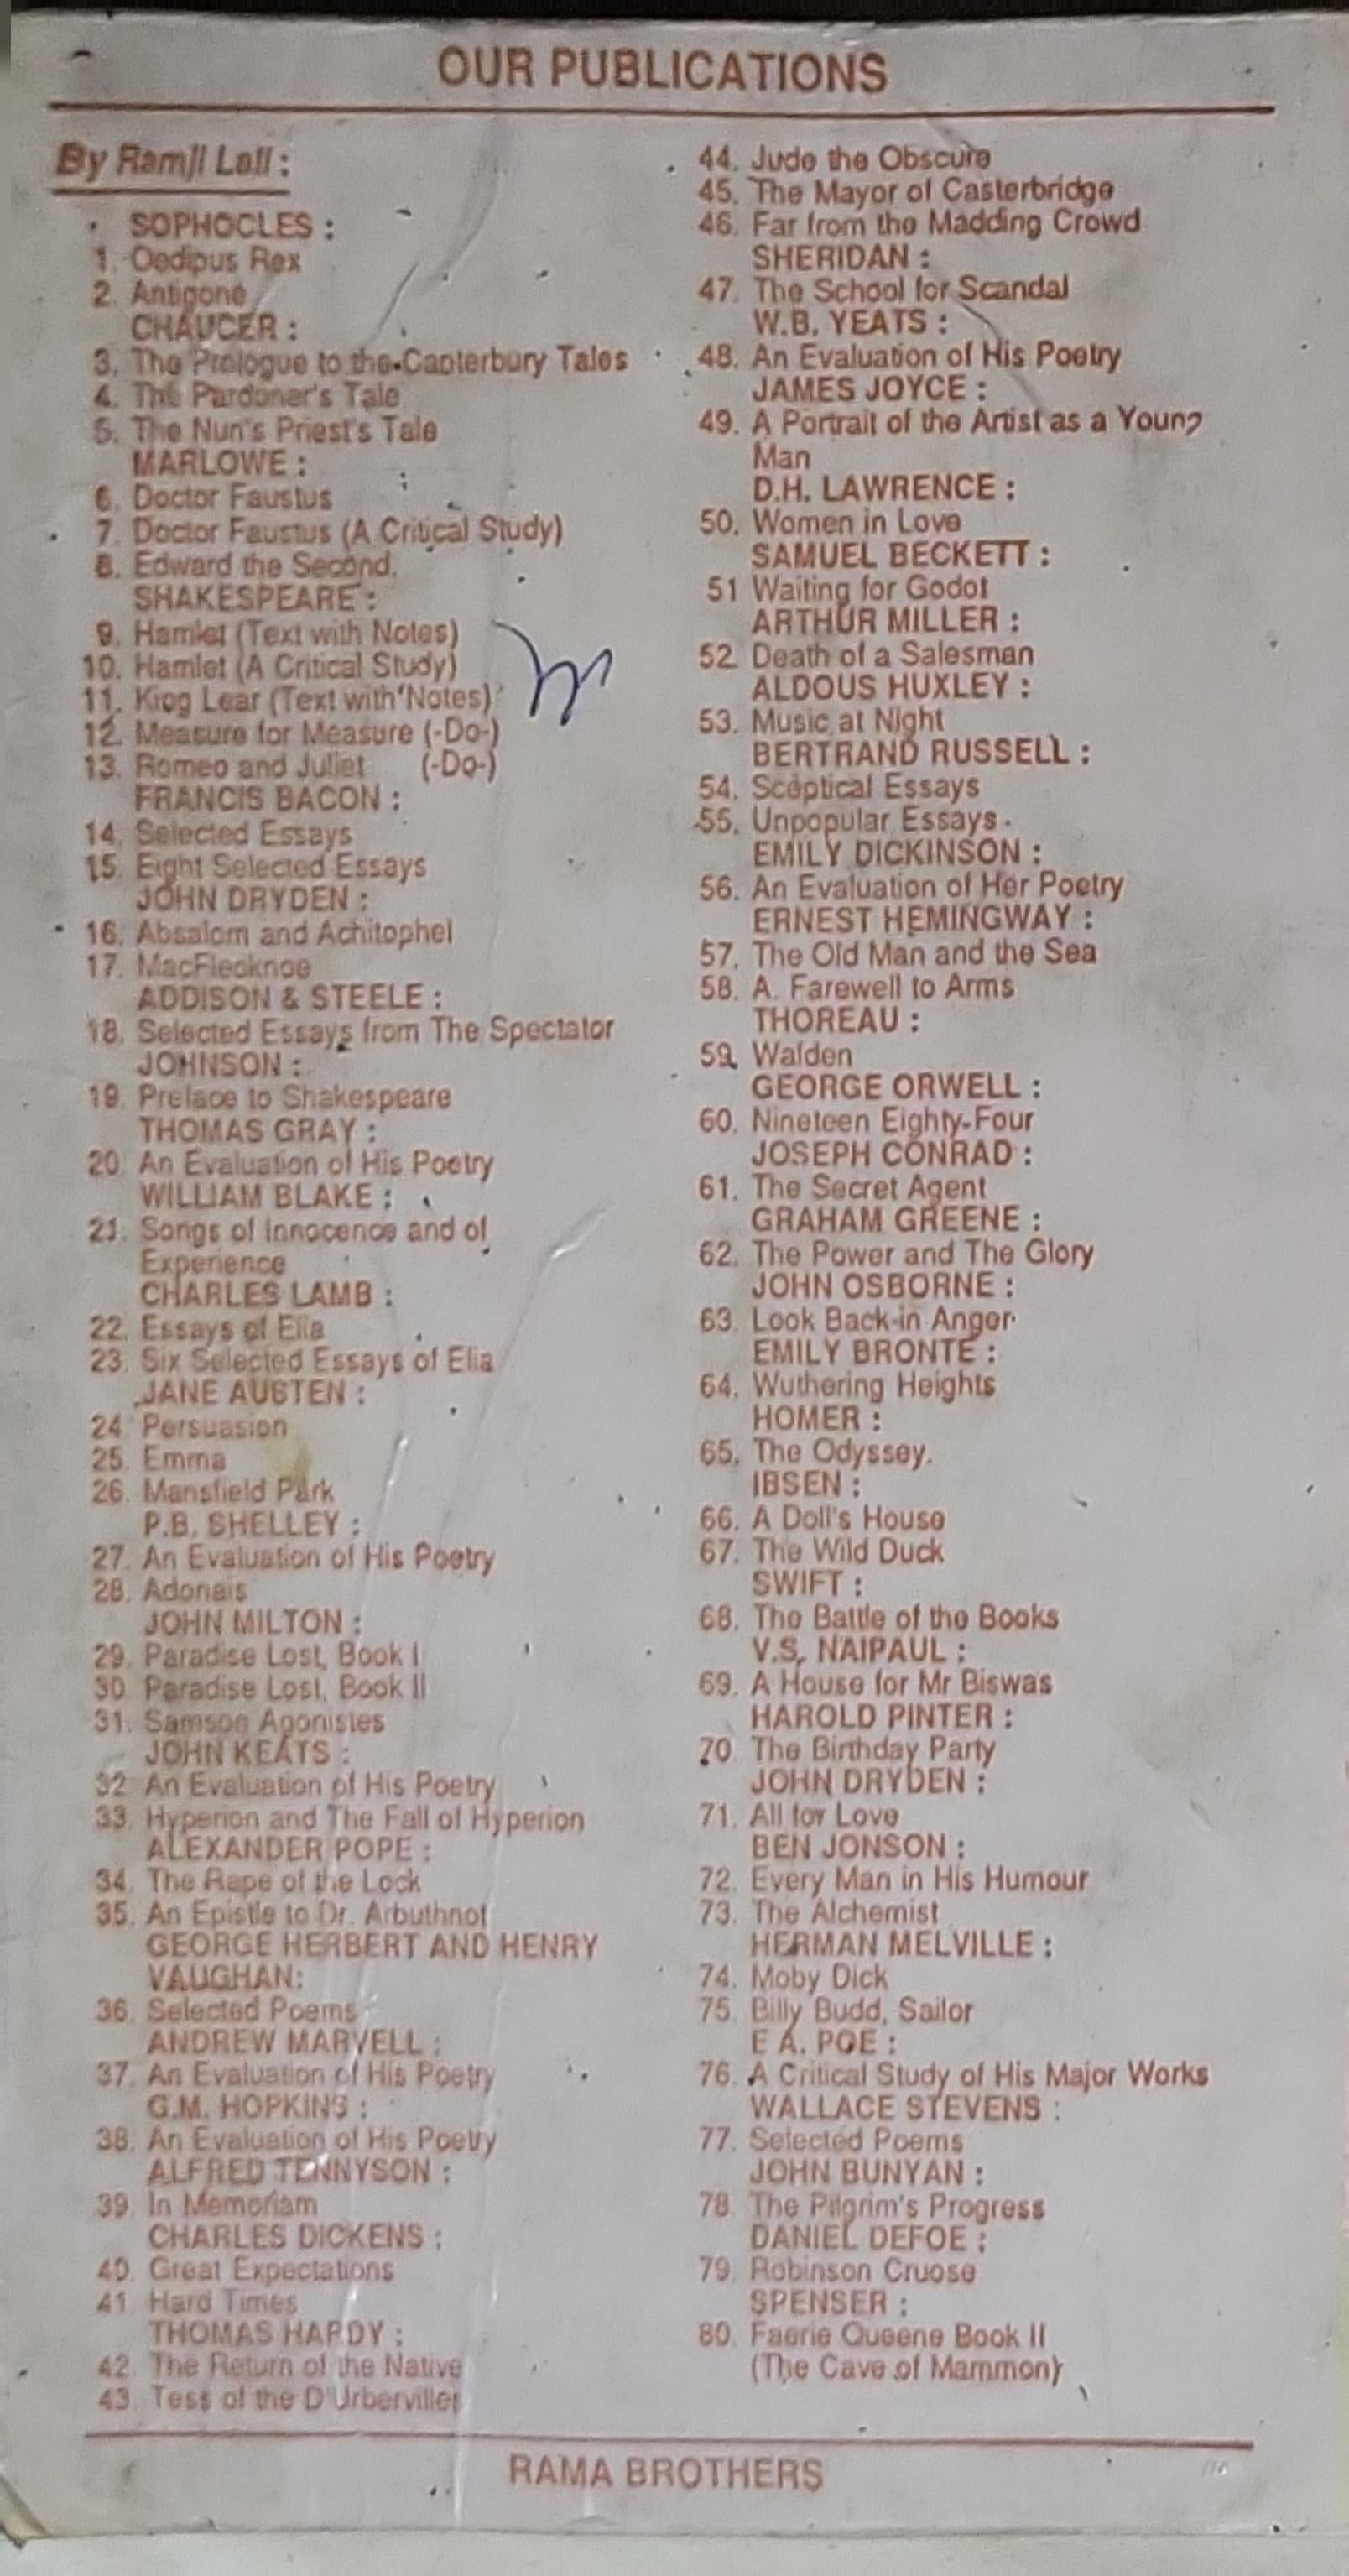 OUR PUBLICATIONS
By Ramji Lall :
SOPHOCLES :
1. Oedipus Rex
2. Antigone
CHAUCER :
3. The Prologue to the Canterbury Tales
4. The Pardoner's Tale
5. The Nun's Priest's Tale
MARLOWE :
6. Doctor Faustus
7. Doctor Faustus (A Critical Study)
8. Edward the Second.
SHAKESPEARE :
9. Hamlet (Text with Notes)
10. Hamlet (A Critical Study)
11. King Lear (Text with Notes)
12. Measure for Measure (-Do-)
13. Romeo and Juliet (-Do-)
FRANCIS BACON :
14. Selected Essays
15. Eight Selected Essays
JOHN DRYDEN :
16. Absalom and Achitophel
17. MacFlecknoe
ADDISON & STEELE :
18. Selected Essays from The Spectator
JOHNSON :
19. Preface to Shakespeare
THOMAS GRAY :
20. An Evaluation of His Poetry
WILLIAM BLAKE :
21. Songs of Innocence and of
Experience
CHARLES LAMB :
22. Essays of Elia
23. Six Selected Essays of Elia
JANE AUSTEN :
24. Persuasion
25. Emma
26. Mansfield Park
P.B. SHELLEY :
27. An Evaluation of His Poetry
28. Adonais
JOHN MILTON :
29. Paradise Lost, Book I
30. Paradise Lost, Book II
31. Samson Agonistes
JOHN KEATS :
32 An Evaluation of His Poetry
33. Hyperion and The Fall of Hyperion
ALEXANDER POPE :
34. The Rape of the Lock
35. An Epistle to Dr. Arbuthnot
GEORGE HERBERT AND HENRY
VAUGHAN:
36. Selected Poems
ANDREW MARVELL :
37. An Evaluation of His Poetry
G.M. HOPKINS :
38. An Evaluation of His Poetry
ALFRED TENNYSON :
39. In Memoriam
CHARLES DICKENS :
40. Great Expectations
41. Hard Times
THOMAS HARDY :
42. The Return of the Native
43. Tess of the D'Urbervilles
44. Jude the Obscure
45. The Mayor of Casterbridge
46. Far from the Madding Crowd
SHERIDAN :
47. The School for Scandal
W.B. YEATS :
48. An Evaluation of His Poetry
JAMES JOYCE :
49. A Portrait of the Artist as a Young
Man
D.H. LAWRENCE :
50. Women in Love
SAMUEL BECKETT :
51 Waiting for Godot
ARTHUR MILLER :
52. Death of a Salesman
ALDOUS HUXLEY :
53. Music at Night
BERTRAND RUSSELL :
54. Sceptical Essays
55. Unpopular Essays
EMILY DICKINSON :
56. An Evaluation of Her Poetry
ERNEST HEMINGWAY :
57. The Old Man and the Sea
58. A. Farewell to Arms
THOREAU :
59. Walden
GEORGE ORWELL :
60. Nineteen Eighty-Four
JOSEPH CONRAD :
61. The Secret Agent
GRAHAM GREENE :
62. The Power and The Glory
JOHN OSBORNE :
63. Look Back in Anger
EMILY BRONTE :
64. Wuthering Heights
HOMER :
65. The Odyssey.
IBSEN :
66. A Doll's House
67. The Wild Duck
SWIFT :
68. The Battle of the Books
V.S. NAIPAUL :
69. A House for Mr Biswas
HAROLD PINTER :
70 The Birthday Party
JOHN DRYDEN :
71. All for Love
BEN JONSON :
72. Every Man in His Humour
73. The Alchemist
HERMAN MELVILLE :
74. Moby Dick
75. Billy Budd, Sailor
E A. POE :
76. A Critical Study of His Major Works
WALLACE STEVENS :
77. Selected Poems
JOHN BUNYAN :
78. The Pilgrim's Progress
DANIEL DEFOE :
79. Robinson Cruose
SPENSER :
80. Faerie Queene Book II
(The Cave of Mammon)
RAMA BROTHERS